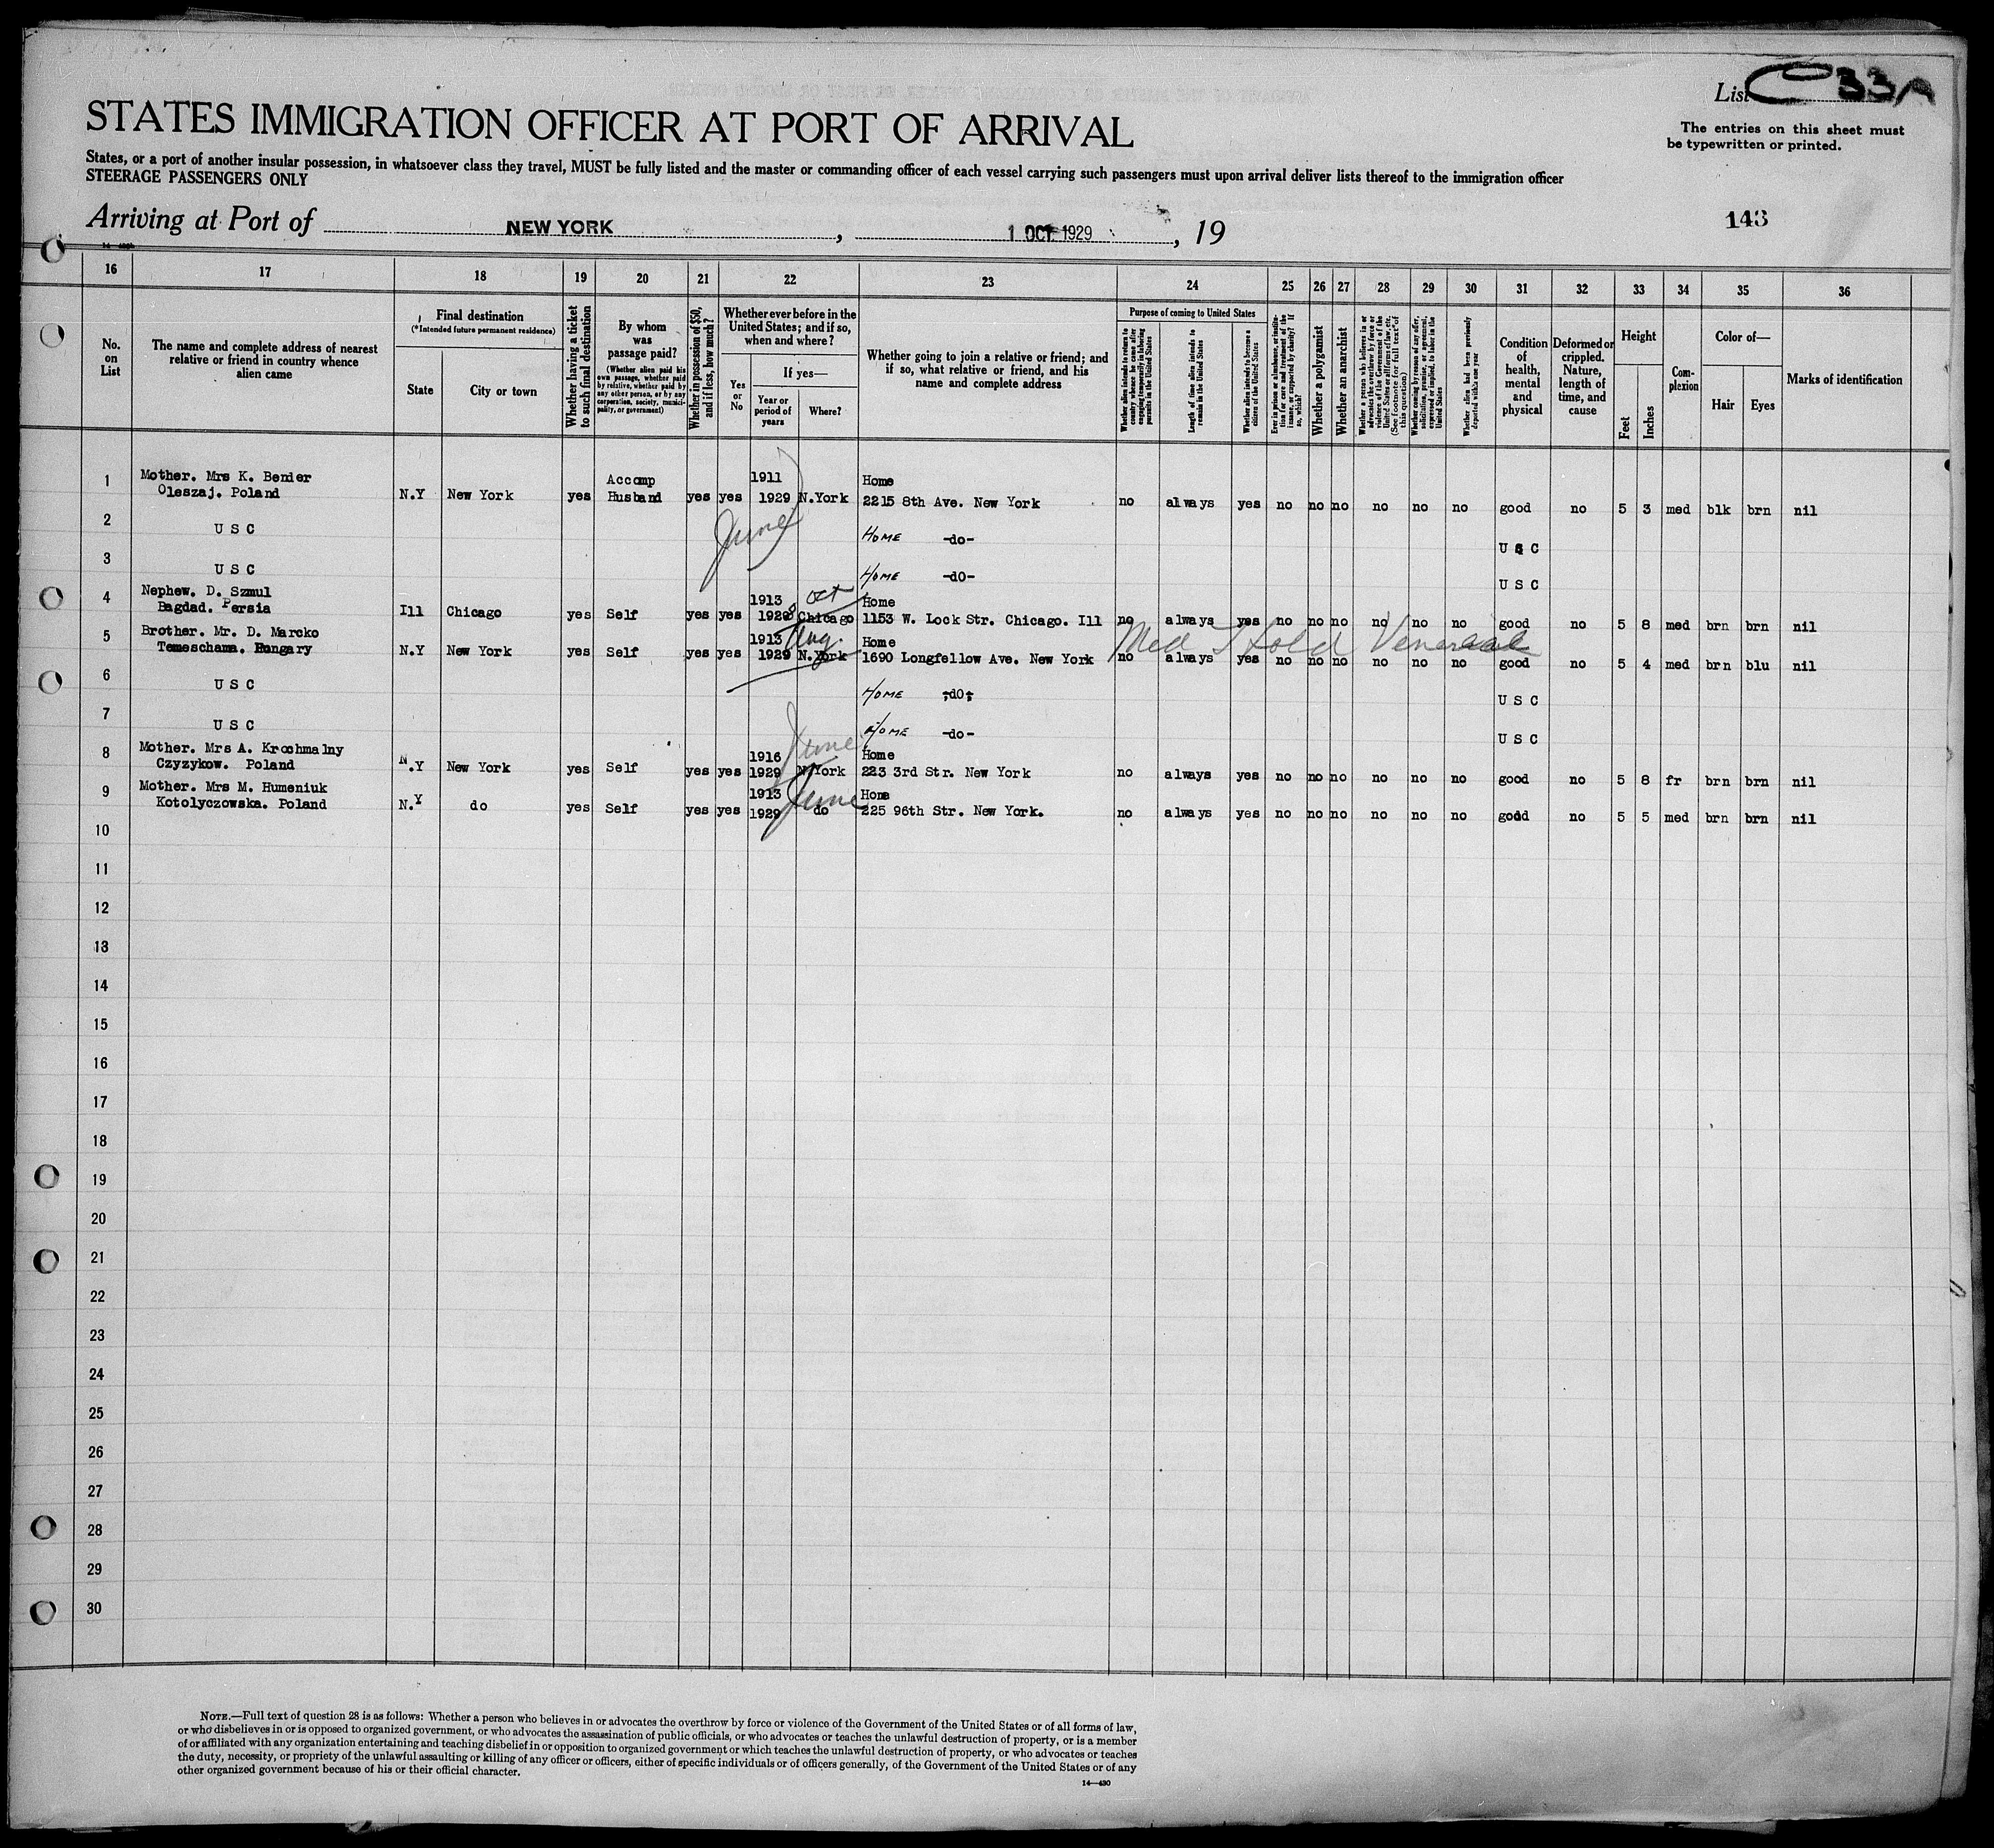 List 33A
The entries on this sheet must
be typewritten or printed.
STATES IMMIGRATION OFFICER AT PORT OF ARRIVAL
States, or a port of another insular possession, in whatsoever class they travel, MUST be fully listed and the master or commanding officer of each vessel carrying such passengers must upon arrival deliver lists thereof to the immigration officer
STEERAGE PASSENGERS ONLY
Arriving at Port of NEW YORK, 1 OCT 1929, 19
143
16 17 18 19 20 21 22 23 24 25 26 27 28 29 30 31 32 33 34 35 36
No. on List
The name and complete address of nearest relative or friend in country whence alien came
Final destination
(*Intended future permanent residence)
State
City or town
Whether having a ticket to such final destination
By whom was passage paid?
(Whether alien paid his own passage, whether paid by relative, whether paid by any other person, or by any corporation, society, municipality, or government)
Whether in possession of $50, and if less, how much?
Whether ever before in the United States; and if so, when and where?
Yes or No
If yes—
Year or period of years
Where?
Whether going to join a relative or friend; and if so, what relative or friend, and his name and complete address
Purpose of coming to United States
Whether alien intends to return to country whence he came after engaging temporarily in laboring pursuits in the United States
Length of time alien intends to remain in the United States
Whether alien intends to become a citizen of the United States
Ever in prison or almshouse, or institution for care and treatment of the insane, or supported by charity? If so, which?
Whether a polygamist
Whether an anarchist
Whether a person who believes in or advocates the overthrow by force or violence of the Government of the United States or all forms of law, etc. (See footnote for full text of this question)
Whether coming by reason of any offer, solicitation, promise, or agreement, expressed or implied, to labor in the United States
Whether alien had been previously deported within one year
Condition of health, mental and physical
Deformed or crippled. Nature, length of time, and cause
Height
Feet
Inches
Complexion
Color of—
Hair
Eyes
Marks of identification
1 Mother. Mrs K. Bender Accomp 1911 Home
Oleszaj. Poland N.Y New York yes Husband yes yes 1929 N.York 2215 8th Ave. New York no always yes no no no no no no good no 5 3 med blk brn nil
June
2 U S C HOME -do- U S C
3 U S C HOME -do- U S C
4 Nephew. D. Szmul 1913 oct Home
Bagdad. Persia Ill Chicago yes Self yes yes 1928 Chicago 1153 W. Lock Str. Chicago. Ill no always yes no no no no no no good no 5 8 med brn brn nil
5 Brother. Mr. D. Marcko 1913 Aug. Home Med Hold Venereal
Temeschama. Hungary N.Y New York yes Self yes yes 1929 N.York 1690 Longfellow Ave. New York no always yes no no no no no no good no 5 4 med brn blu nil
6 U S C HOME -do- U S C
7 U S C HOME -do- U S C
8 Mother. Mrs A. Krochmalny 1916 June Home
Czyzykow. Poland N.Y New York yes Self yes yes 1929 N.York 223 3rd Str. New York no always yes no no no no no no good no 5 8 fr brn brn nil
9 Mother. Mrs M. Humeniuk 1913 June Home
Kotolyczowska. Poland N.Y do yes Self yes yes 1929 do 225 96th Str. New York. no always yes no no no no no no good no 5 5 med brn brn nil
10
11
12
13
14
15
16
17
18
19
20
21
22
23
24
25
26
27
28
29
30
NOTE.—Full text of question 28 is as follows: Whether a person who believes in or advocates the overthrow by force or violence of the Government of the United States or of all forms of law,
or who disbelieves in or is opposed to organized government, or who advocates the assassination of public officials, or who advocates or teaches the unlawful destruction of property, or is a member
of or affiliated with any organization entertaining and teaching disbelief in or opposition to organized government or which teaches the unlawful destruction of property, or who advocates or teaches
the duty, necessity, or propriety of the unlawful assaulting or killing of any officer or officers, either of specific individuals or of officers generally, of the Government of the United States or of any
other organized government because of his or their official character.
14—430